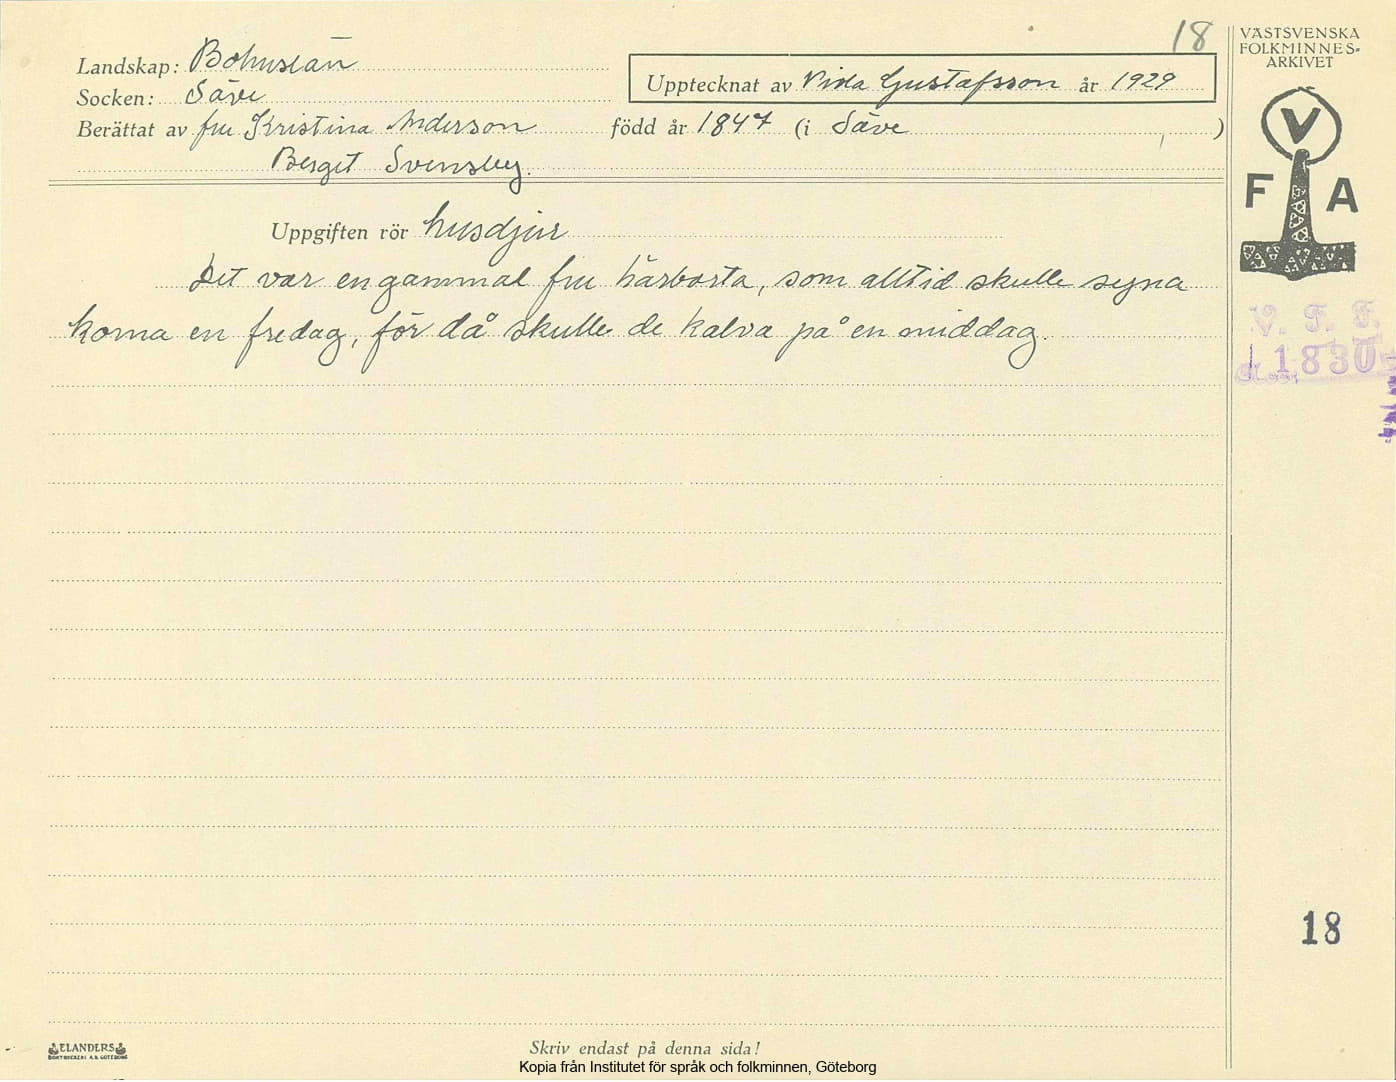 18
VÄSTSVENSKA
FOLKMINNES-
ARKIVET
Landskap: Bohuslän
Upptecknat av Vida Gustafsson år 1929
Socken: Säve
Berättat av fru Kristina Anderson född år 1847 (i Säve )
Berget Svensby.
V
F A
Uppgiften rör husdjur
Det var en gammal fru härborta, som alltid skulle segna
korna en fredag, för då skulle de kalva på en middag.
V. F. F.
1830
18
ELANDERS
BOKTRYCKERI A.B. GÖTEBORG
Skriv endast på denna sida!
Kopia från Institutet för språk och folkminnen, Göteborg